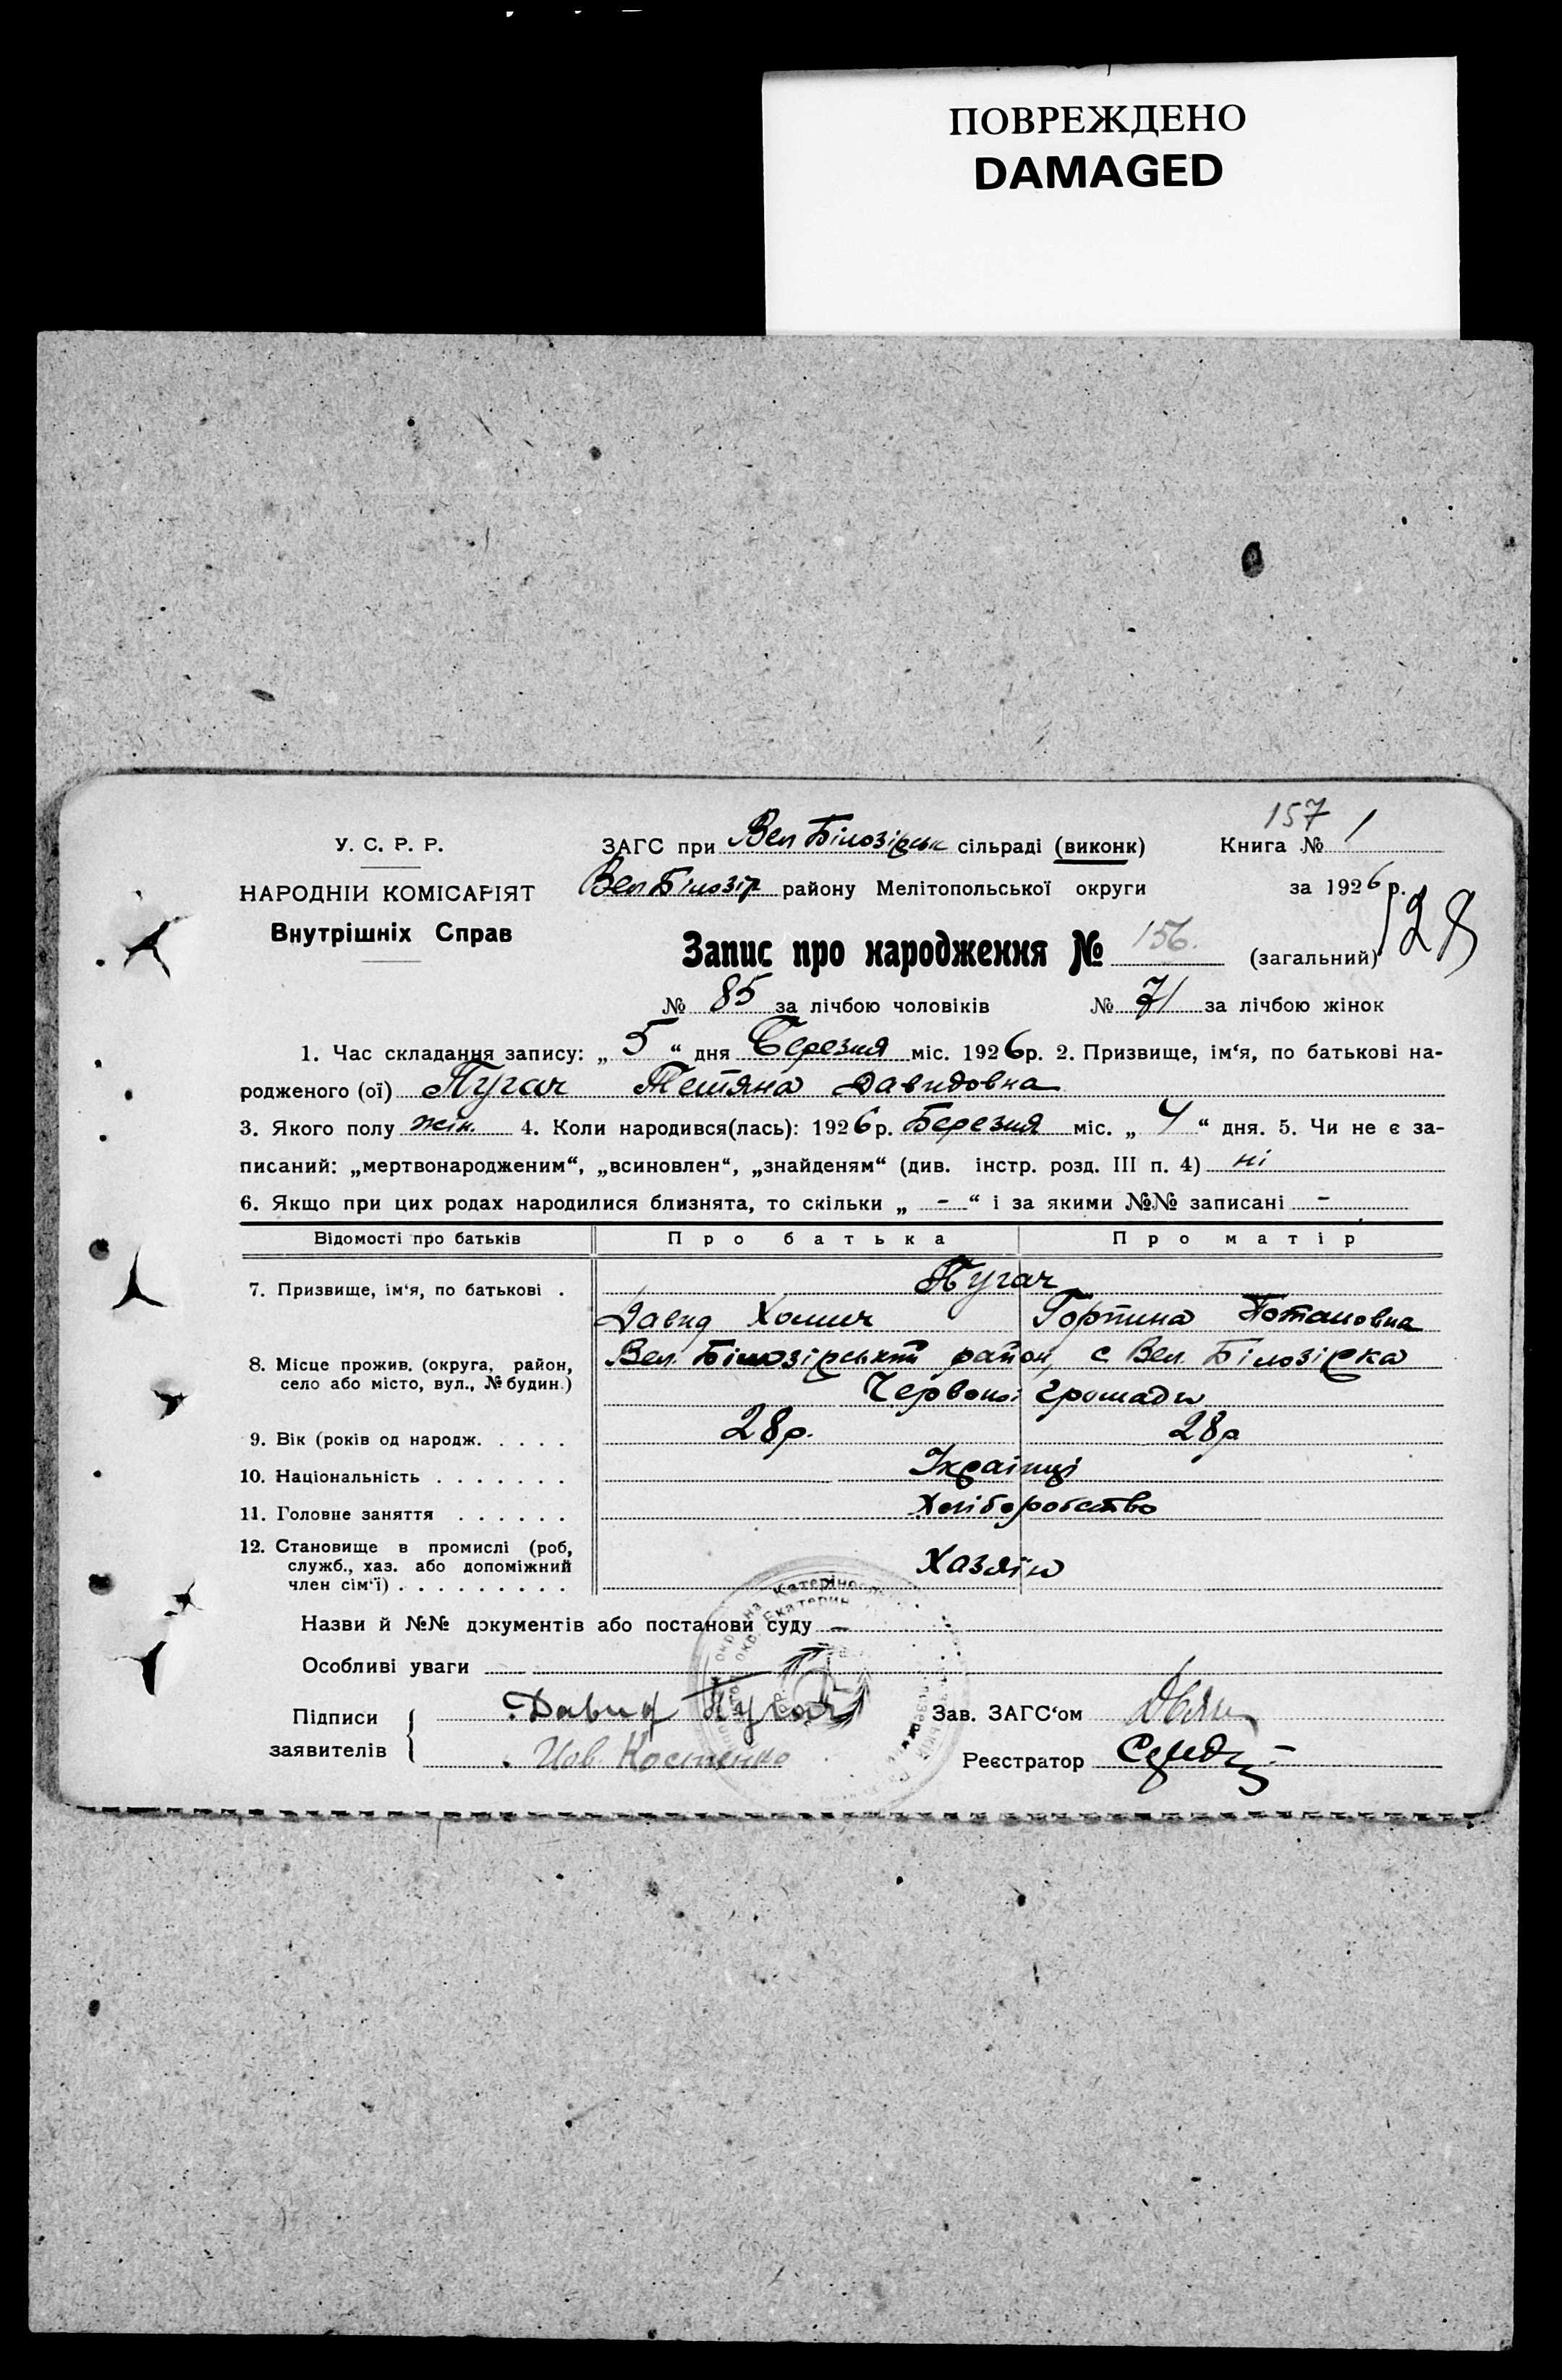 ПОВРЕЖДЕНО
DAMAGED
157
У. С. Р. Р.
ЗАГС при Вел Білозірськ сільраді (виконк)
Книга № 1
НАРОДНІЙ КОМІСАРІЯТ
Вел Білозір району Мелітопольської округи
за 1926 р.
Внутрішніх Справ
128
Запис про народження № 156. (загальний)
№ 85 за лічбою чоловіків № 71 за лічбою жінок
1. Час складання запису: „ 5 “ дня Березня міс. 1926 р. 2. Призвище, ім‘я, по батькові на-
родженого (ої) Пугач Тетяна Давидовна
3. Якого полу жін. 4. Коли народився(лась): 1926 р. Березня міс. „ 4 “ дня. 5. Чи не є за-
писаний: „мертвонародженим“, „всиновлен“, „знайденям“ (див. інстр. розд. III п. 4) ні
6. Якщо при цих родах народилися близнята, то скільки „ - “ і за якими №№ записані -
Відомості про батьків Про батька Про матір
7. Призвище, ім‘я, по батькові . Пугач
Давид Хомич Горпина Потаповна
8. Місце прожив. (округа, район, Вел. Білозірський район, с Вел. Білозірка
село або місто, вул., № будин.)
Червоної Громади
9. Вік (років од народж. . . . . 28 р. 28 р
10. Національність . . . . . . . Українці
11. Головне заняття . . . . . . Хліборобство
12. Становище в промислі (роб,
служб., хаз. або допоміжний
член сім‘ї) . . . . . . . . . Хазяїн
Назви й №№ документів або постанови суду —
Особливі уваги
Підписи
заявителів
Давид Пугач
Костенко
Зав. ЗАГС‘ом
Реєстратор